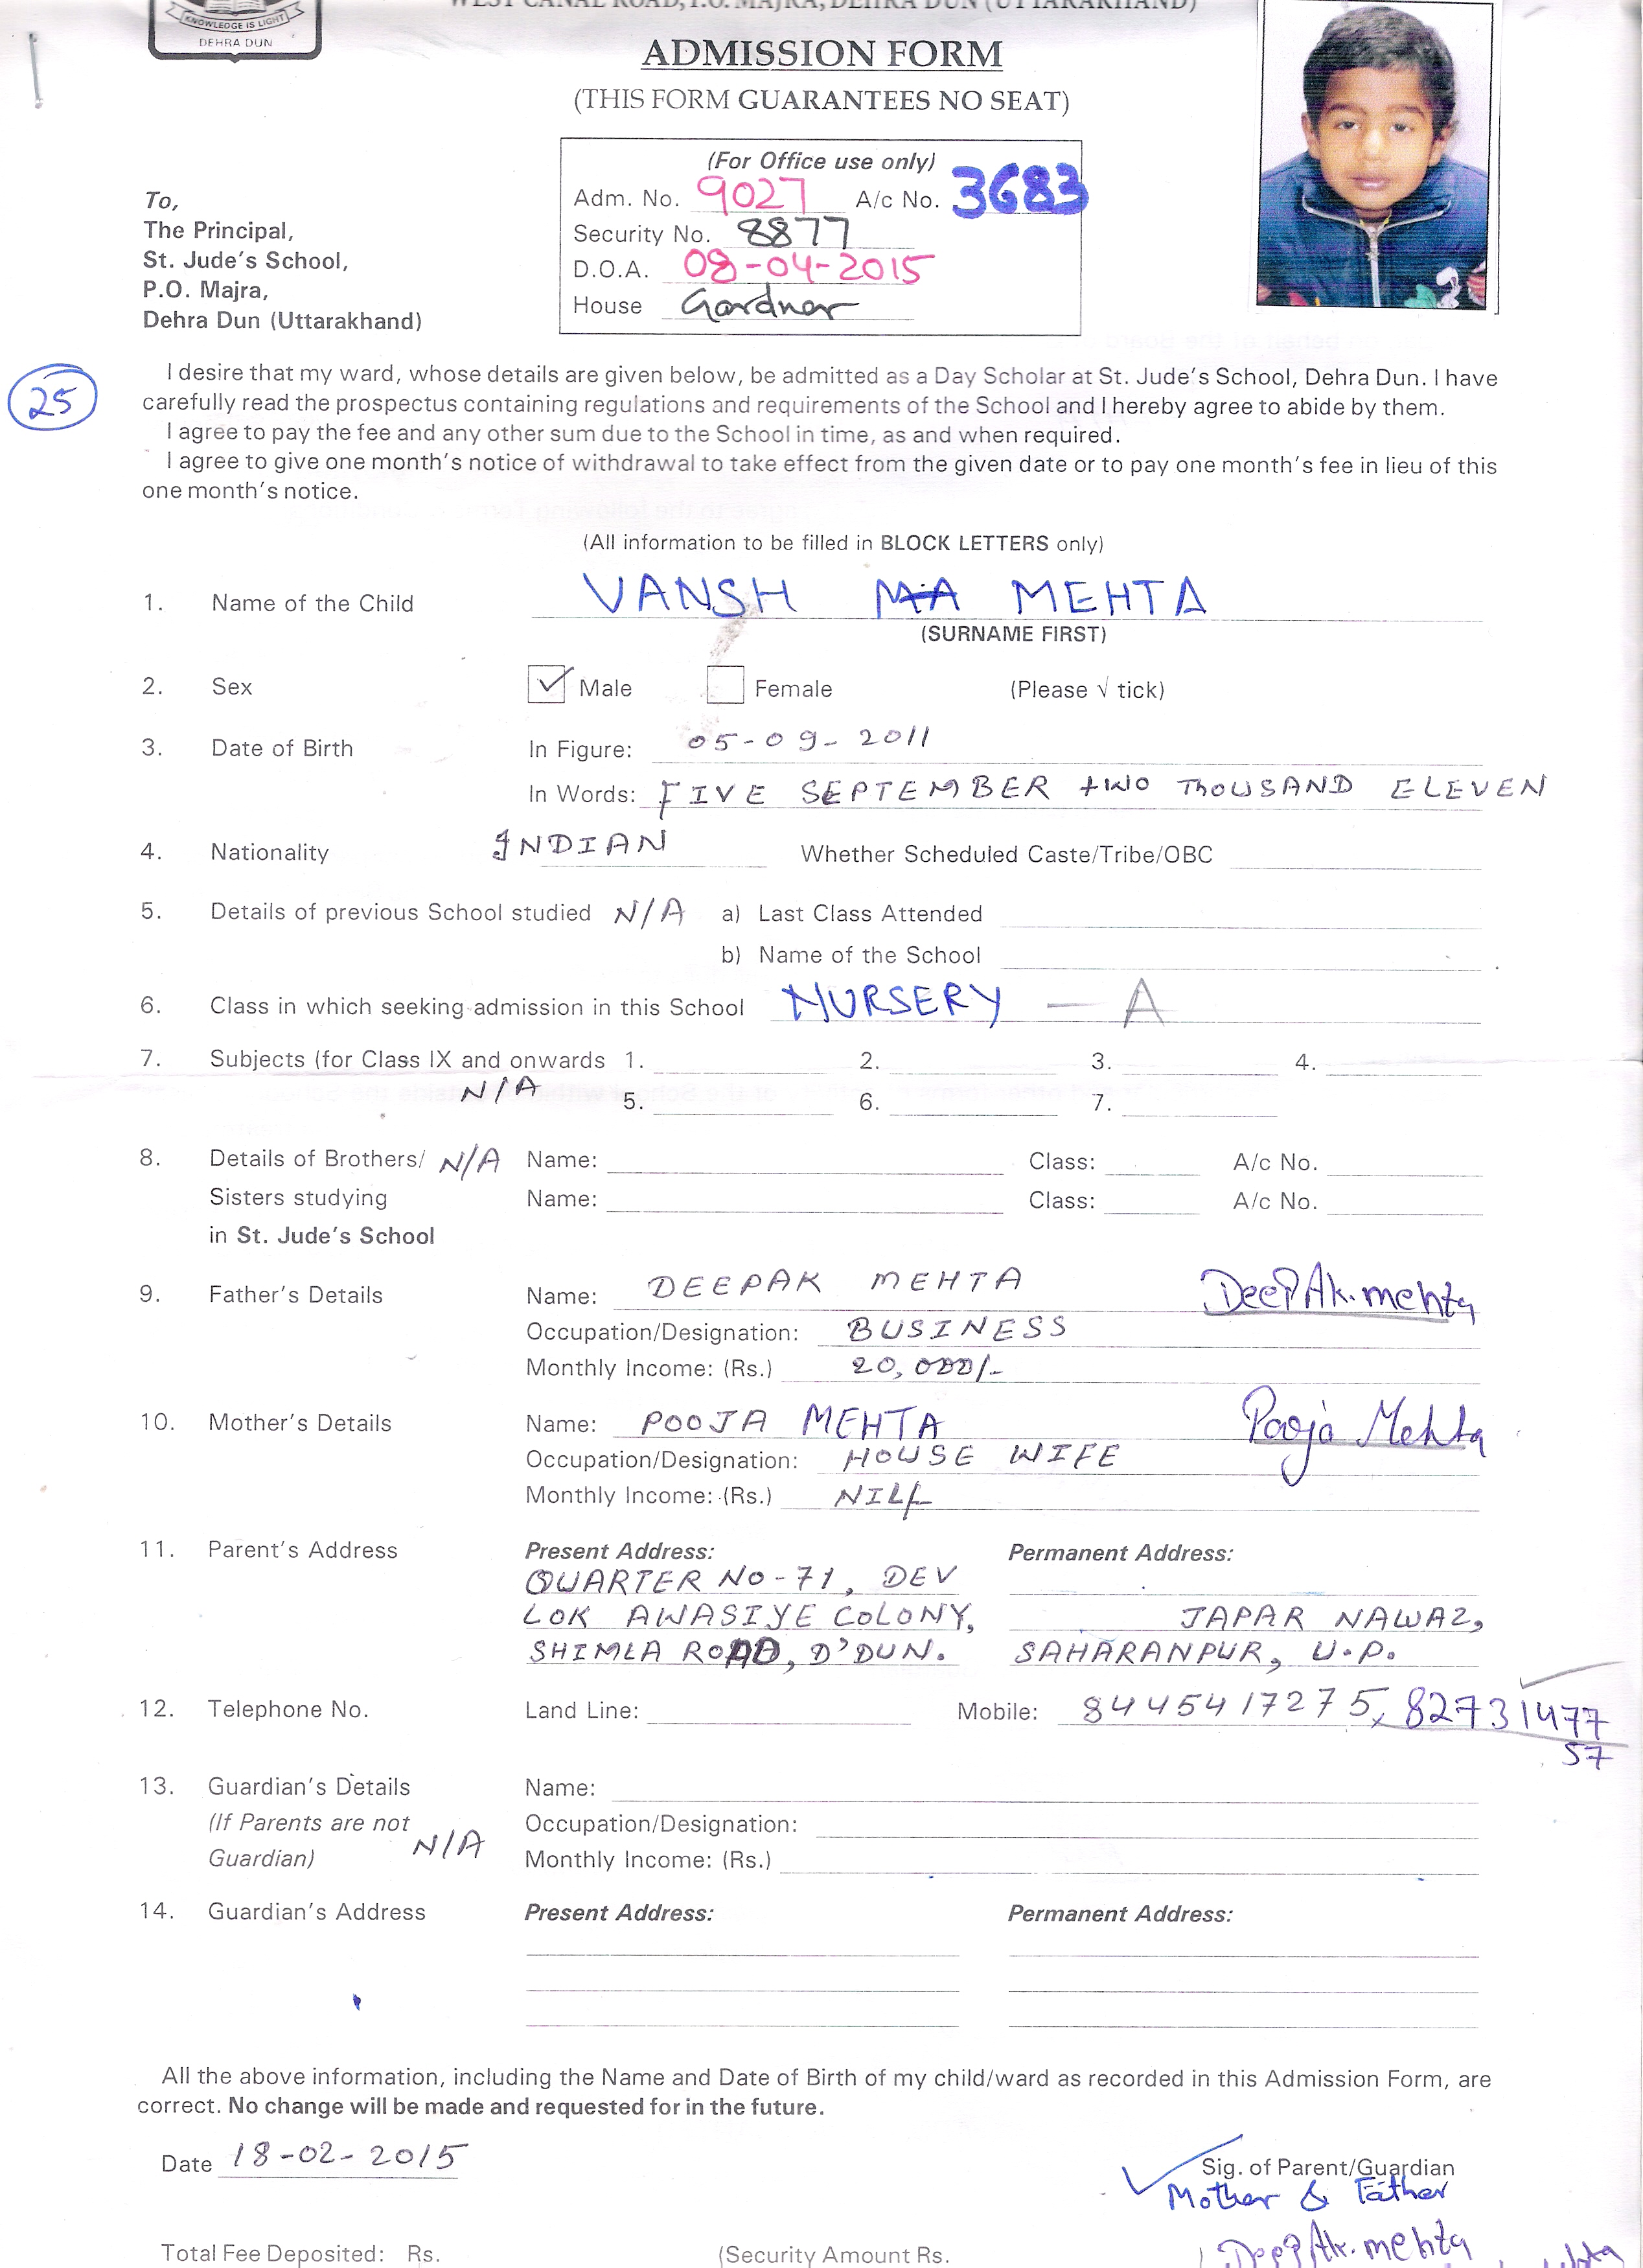 KNOWLEDGE IS LIGHT
DEHRA DUN
WEST CANAL ROAD, P.O. MAJRA, DEHRA DUN (UTTARAKHAND)
ADMISSION FORM
(THIS FORM GUARANTEES NO SEAT)
(For Office use only)
Adm. No. 9027 A/c No. 3683
Security No. 8877
D.O.A. 08-04-2015
House Gardner
To,
The Principal,
St. Jude's School,
P.O. Majra,
Dehra Dun (Uttarakhand)
25
I desire that my ward, whose details are given below, be admitted as a Day Scholar at St. Jude's School, Dehra Dun. I have
carefully read the prospectus containing regulations and requirements of the School and I hereby agree to abide by them.
I agree to pay the fee and any other sum due to the School in time, as and when required.
I agree to give one month's notice of withdrawal to take effect from the given date or to pay one month's fee in lieu of this
one month's notice.
(All information to be filled in BLOCK LETTERS only)
1. Name of the Child VANSH MA MEHTA
(SURNAME FIRST)
2. Sex Male Female (Please √ tick)
3. Date of Birth In Figure: 05-09-2011
In Words: FIVE SEPTEMBER tWO ThOUSAND ELEVEN
4. Nationality INDIAN Whether Scheduled Caste/Tribe/OBC
5. Details of previous School studied N/A a) Last Class Attended
b) Name of the School
6. Class in which seeking admission in this School NURSERY — A
7. Subjects (for Class IX and onwards 1. 2. 3. 4.
N/A 5. 6. 7.
8. Details of Brothers/ N/A Name: Class: A/c No.
Sisters studying Name: Class: A/c No.
in St. Jude's School
9. Father's Details Name: DEEPAK MEHTA DeePAk.mehta
Occupation/Designation: BUSINESS
Monthly Income: (Rs.) 20,000/-
10. Mother's Details Name: POOJA MEHTA Pooja Mehta
Occupation/Designation: HOUSE WIFE
Monthly Income: (Rs.) NILL
11. Parent's Address Present Address: Permanent Address:
QUARTER NO-71, DEV
LOK AWASIYE COLONY, JAPAR NAWAZ,
SHIMLA ROAD, D'DUN. SAHARANPUR, U.P.
12. Telephone No. Land Line: Mobile: 8445417275, 82731477
57
13. Guardian's Details Name:
(If Parents are not Occupation/Designation:
Guardian) N/A Monthly Income: (Rs.)
14. Guardian's Address Present Address: Permanent Address:
All the above information, including the Name and Date of Birth of my child/ward as recorded in this Admission Form, are
correct. No change will be made and requested for in the future.
Date 18-02-2015
Sig. of Parent/Guardian
Mother & Father
DeePAk.mehta
Total Fee Deposited: Rs. (Security Amount Rs.